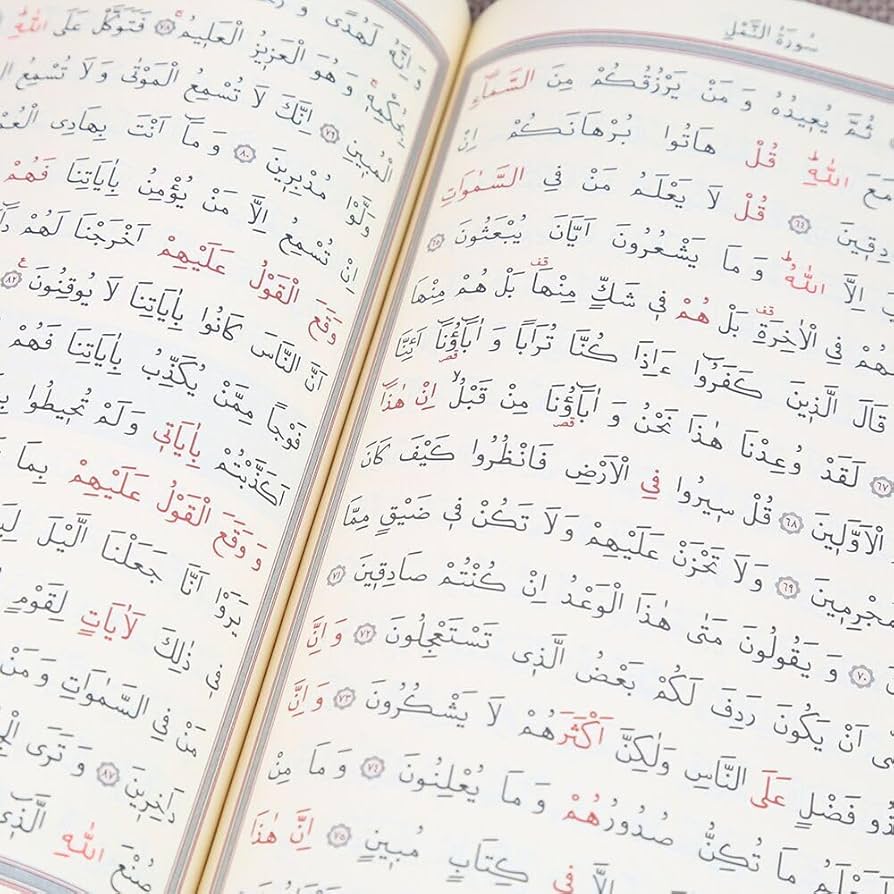 سُورَةُ النَّمْلِ
ثُمَّ يُعِيدُهُ وَمَنْ يَرْزُقُكُمْ مِنَ السَّمَاءِ
مَعَ اللّٰهِ قُلْ هَاتُوا بُرْهَانَكُمْ اِنْ
﴿٦٤﴾ قُلْ لَا يَعْلَمُ مَنْ فِي السَّمٰوَاتِ
اِلَّا اللّٰهُ وَمَا يَشْعُرُونَ اَيَّانَ يُبْعَثُونَ ﴿٦٥﴾
فِي الْاٰخِرَةِ بَلْ هُمْ فِي شَكٍّ مِنْهَا بَلْ هُمْ مِنْهَا
قَالَ الَّذِينَ كَفَرُوا ءَاِذَا كُنَّا تُرَابًا وَاٰبَاؤُنَا اَئِنَّا
﴿٦٧﴾ لَقَدْ وُعِدْنَا هٰذَا نَحْنُ وَاٰبَاؤُنَا مِنْ قَبْلُ اِنْ هٰذَا
الْاَوَّلِينَ ﴿٦٨﴾ قُلْ سِيرُوا فِي الْاَرْضِ فَانْظُرُوا كَيْفَ كَانَ
﴿٦٩﴾ وَلَا تَحْزَنْ عَلَيْهِمْ وَلَا تَكُنْ فِي ضَيْقٍ مِمَّا
﴿٧٠﴾ وَيَقُولُونَ مَتٰى هٰذَا الْوَعْدُ اِنْ كُنْتُمْ صَادِقِينَ ﴿٧١﴾
اَنْ يَكُونَ رَدِفَ لَكُمْ بَعْضُ الَّذِي تَسْتَعْجِلُونَ ﴿٧٢﴾ وَاِنَّ
فَضْلٍ عَلَى النَّاسِ وَلٰكِنَّ اَكْثَرَهُمْ لَا يَشْكُرُونَ ﴿٧٣﴾ وَاِنَّ
مَا تُكِنُّ صُدُورُهُمْ وَمَا يُعْلِنُونَ ﴿٧٤﴾ وَمَا مِنْ
اِلَّا فِي كِتَابٍ مُبِينٍ ﴿٧٥﴾ اِنَّ هٰذَا
وَاِنَّهُ لَهُدًى
بِحُكْمِهِ وَهُوَ الْعَزِيزُ الْعَلِيمُ ﴿٧٨﴾ فَتَوَكَّلْ عَلَى اللّٰهِ
الْمُبِينِ ﴿٧٩﴾ اِنَّكَ لَا تُسْمِعُ الْمَوْتٰى وَلَا تُسْمِعُ
وَلَّوْا مُدْبِرِينَ ﴿٨٠﴾ وَمَا اَنْتَ بِهَادِي
اِنْ تُسْمِعُ اِلَّا مَنْ يُؤْمِنُ بِاٰيَاتِنَا فَهُمْ
وَقَعَ الْقَوْلُ عَلَيْهِمْ اَخْرَجْنَا لَهُمْ
اَنَّ النَّاسَ كَانُوا بِاٰيَاتِنَا لَا يُوقِنُونَ ﴿٨٢﴾
فَوْجًا مِمَّنْ يُكَذِّبُ بِاٰيَاتِنَا فَهُمْ
اَكَذَّبْتُمْ بِاٰيَاتِي وَلَمْ تُحِيطُوا
وَوَقَعَ الْقَوْلُ عَلَيْهِمْ بِمَا
يَرَوْا اَنَّا جَعَلْنَا الَّيْلَ
فِي ذٰلِكَ لَاٰيَاتٍ لِقَوْمٍ
مَنْ فِي السَّمٰوَاتِ وَمَنْ
دَاخِرِينَ ﴿٨٧﴾ وَتَرَى
صُنْعَ اللّٰهِ الَّذِي